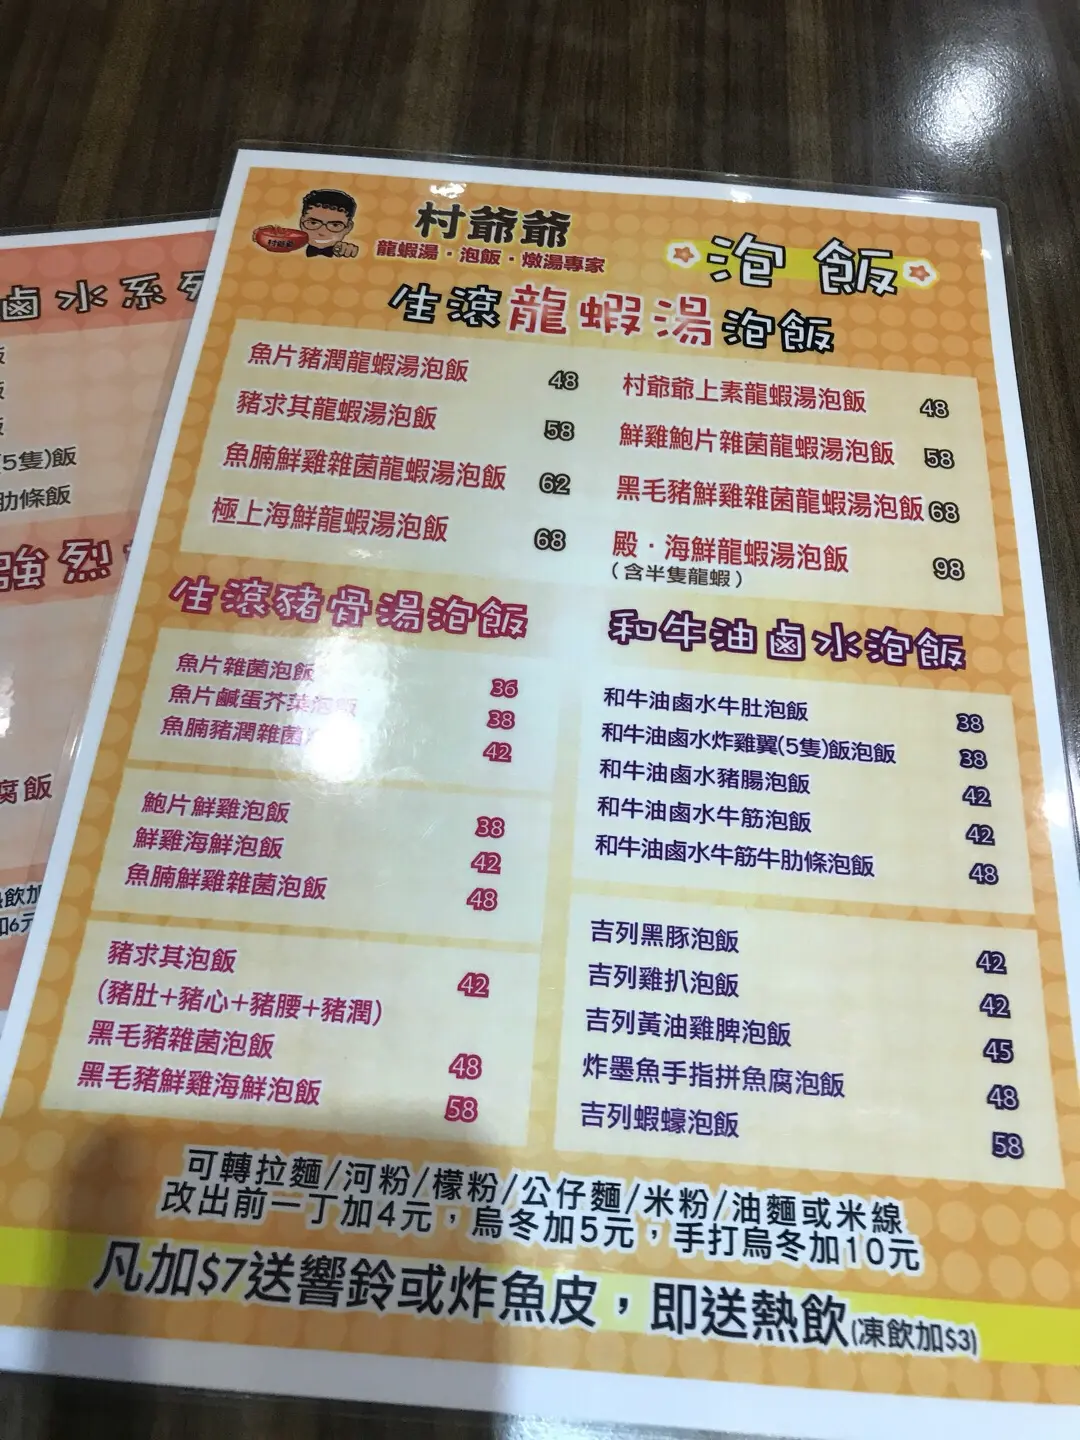 村爺爺
龍蝦湯·泡飯·燉湯專家
泡飯
生滾龍蝦湯泡飯
魚片豬潤龍蝦湯泡飯 48
豬求其龍蝦湯泡飯 58
魚腩鮮雞雜菌龍蝦湯泡飯 62
極上海鮮龍蝦湯泡飯 68
村爺爺上素龍蝦湯泡飯 48
鮮雞鮑片雜菌龍蝦湯泡飯 58
黑毛豬鮮雞雜菌龍蝦湯泡飯 68
殿·海鮮龍蝦湯泡飯 98
(含半隻龍蝦)
生滾豬骨湯泡飯
魚片雜菌泡飯 36
魚片鹹蛋芥菜泡飯 38
魚腩豬潤雜菌 42
鮑片鮮雞泡飯 38
鮮雞海鮮泡飯 42
魚腩鮮雞雜菌泡飯 48
豬求其泡飯 42
(豬肚+豬心+豬腰+豬潤)
黑毛豬雜菌泡飯 48
黑毛豬鮮雞海鮮泡飯 58
和牛油鹵水泡飯
和牛油鹵水牛肚泡飯 38
和牛油鹵水炸雞翼(5隻)飯泡飯 38
和牛油鹵水豬腸泡飯 42
和牛油鹵水牛筋泡飯 42
和牛油鹵水牛筋牛肋條泡飯 48
吉列黑豚泡飯 42
吉列雞扒泡飯 42
吉列黃油雞脾泡飯 45
炸墨魚手指拼魚腐泡飯 48
吉列蝦蠔泡飯 58
可轉拉麵/河粉/檬粉/公仔麵/米粉/油麵或米線
改出前一丁加4元，烏冬加5元，手打烏冬加10元
凡加$7送響鈴或炸魚皮，即送熱飲(凍飲加$3)
鹵水系列
飯
飯
飯
(5隻)飯
肋條飯
強烈
腐飯
熱飲加
加6元